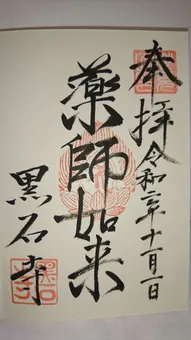 奉拝
令和二年十一月一日
薬師如来
黒石寺